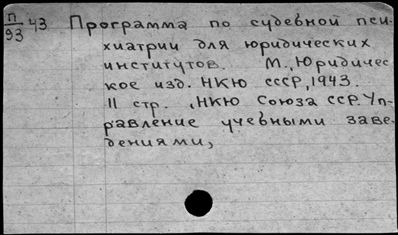 П
93 43 Программа по судебной пси-
хиатрии для юридических
институтов. М., Юридичес
кое изд. НКЮ СССР, 1943.
11 стр. , НКЮ Союза ССР. Уп-
равление учебными заве-
дениями,